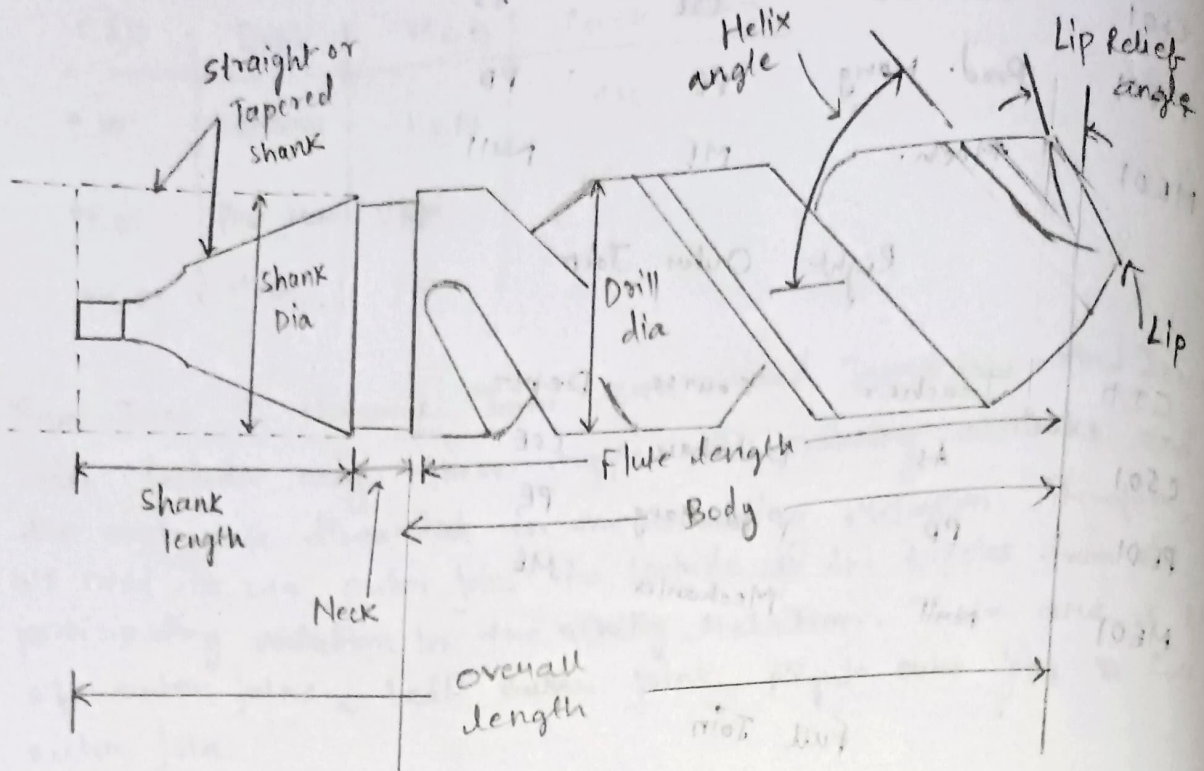 straight or
Tapered
shank
Helix
angle
Lip Relief
angle
Shank
Dia
Drill
dia
Lip
Flute length
Shank
length
Body
Neck
Overall
length